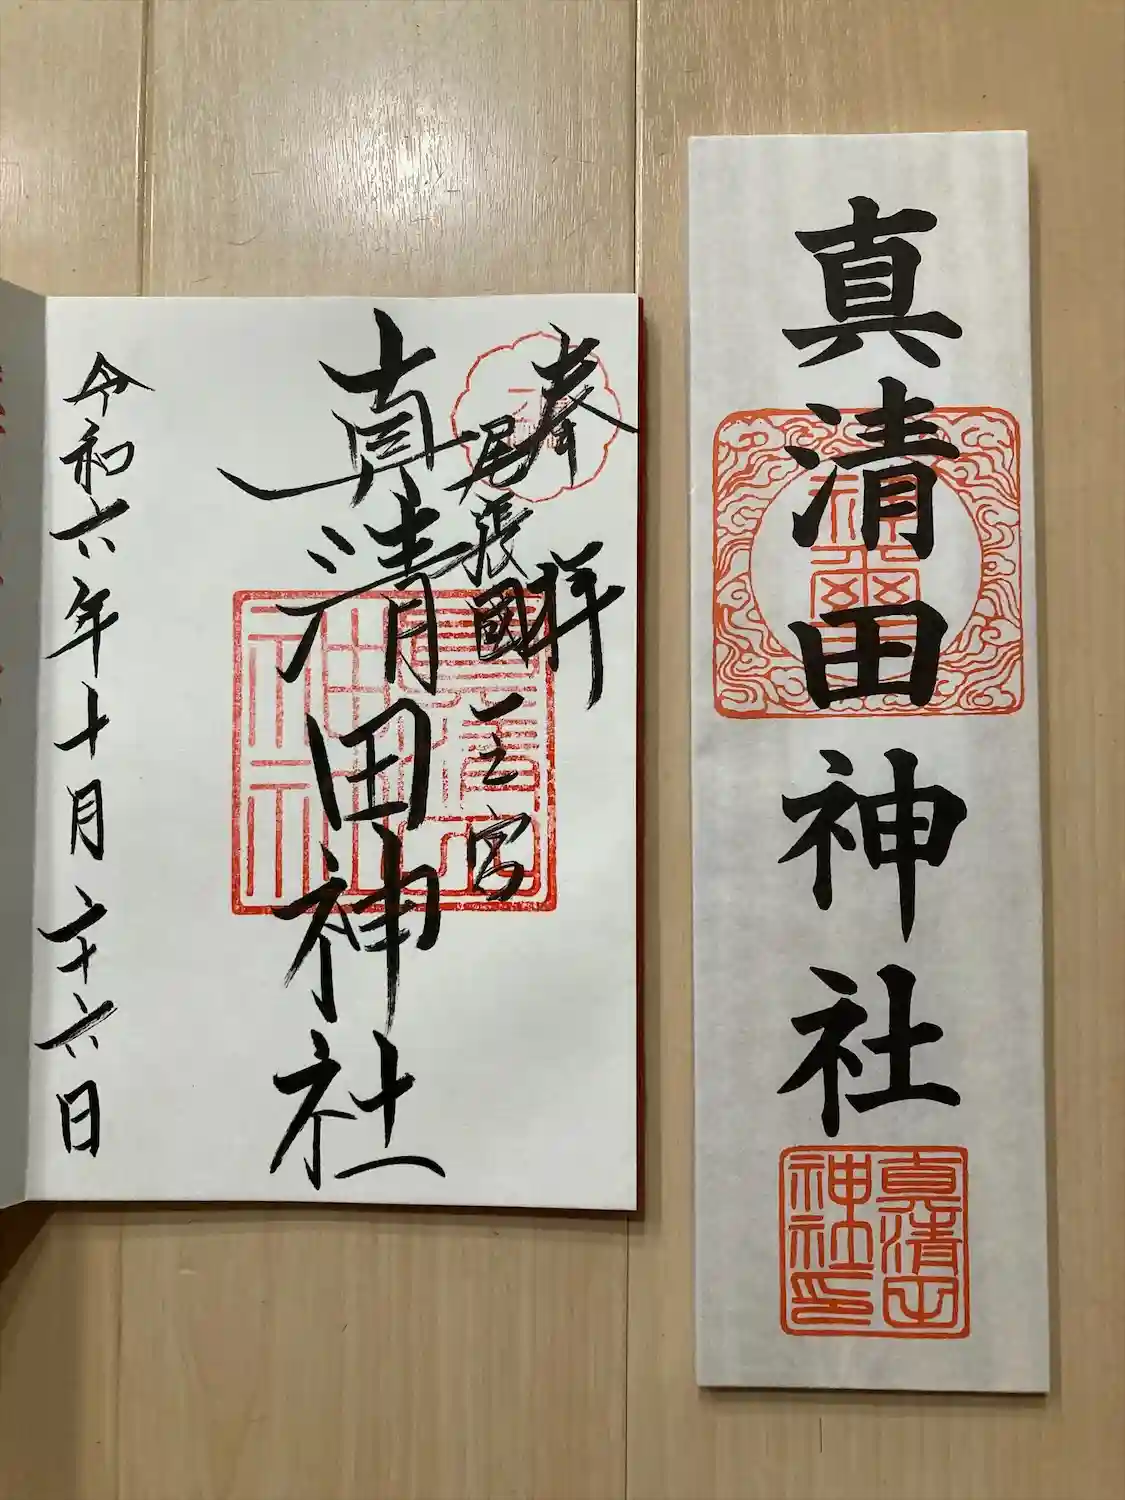 奉拝
尾張國一之宮
真清田神社
真清田神社
令和六年十月二十六日
真清田神社
神璽
真清田
神社印